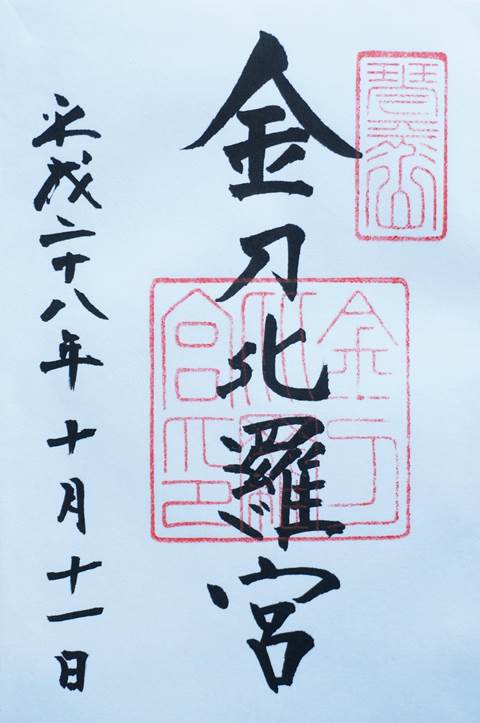 琴平山
金刀比羅宮
金刀比羅宮印
平成二十八年十月十一日